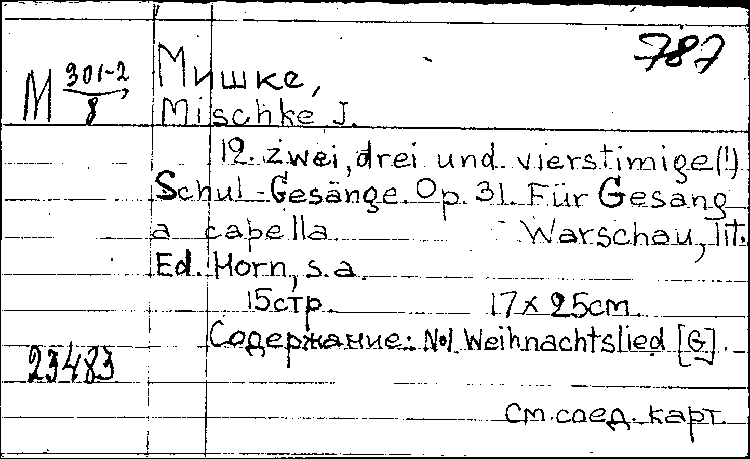 787
M 301-2/8
Мишке,
Mischke J.
12. zwei, drei und vierstimige(!)
Schul-Gesänge. Op. 31. Für Gesang
a capella. Warschau, lit.
Ed. Horn, s.a.
15стр. 17x25cm.
Содержание: №1. Weihnachtslied [G].
23483
См. след. карт.